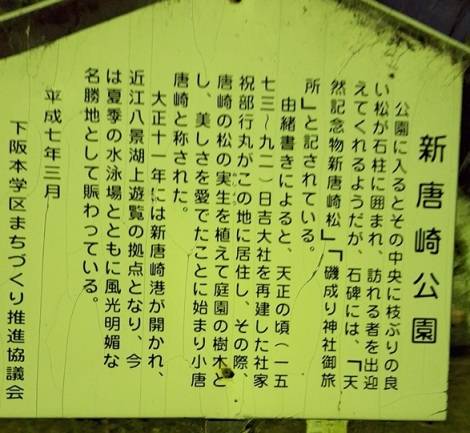 新唐崎公園
公園に入るとその中央に枝ぶりの良
い松が石柱に囲まれ、訪れる者を出迎
えてくれるようだが、石碑には、「天
然記念物新唐崎松」「磯成り神社御旅
所」と記されている。
由緒書きによると、天正の頃（一五
七三〜九二）日吉大社を再建した社家
祝部行丸がこの地に居住し、その際、
唐崎の松の実生を植えて庭園の樹木と
し、美しさを愛でたことに始まり小唐
唐崎と称された。
大正十一年には新唐崎港が開かれ、
近江八景湖上遊覧の拠点となり、今
は夏季の水泳場とともに風光明媚な
名勝地として賑わっている。
平成七年三月
下阪本学区まちづくり推進協議会